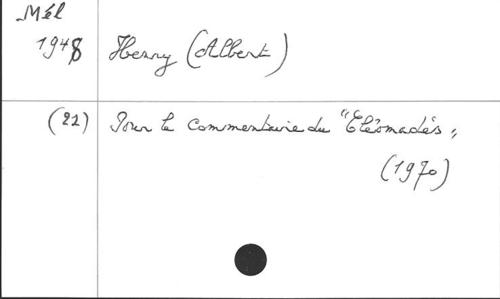 Mél
1948 Henry (Albert)
(22) Pour le commentaire du "Cléomadés"
(1970)